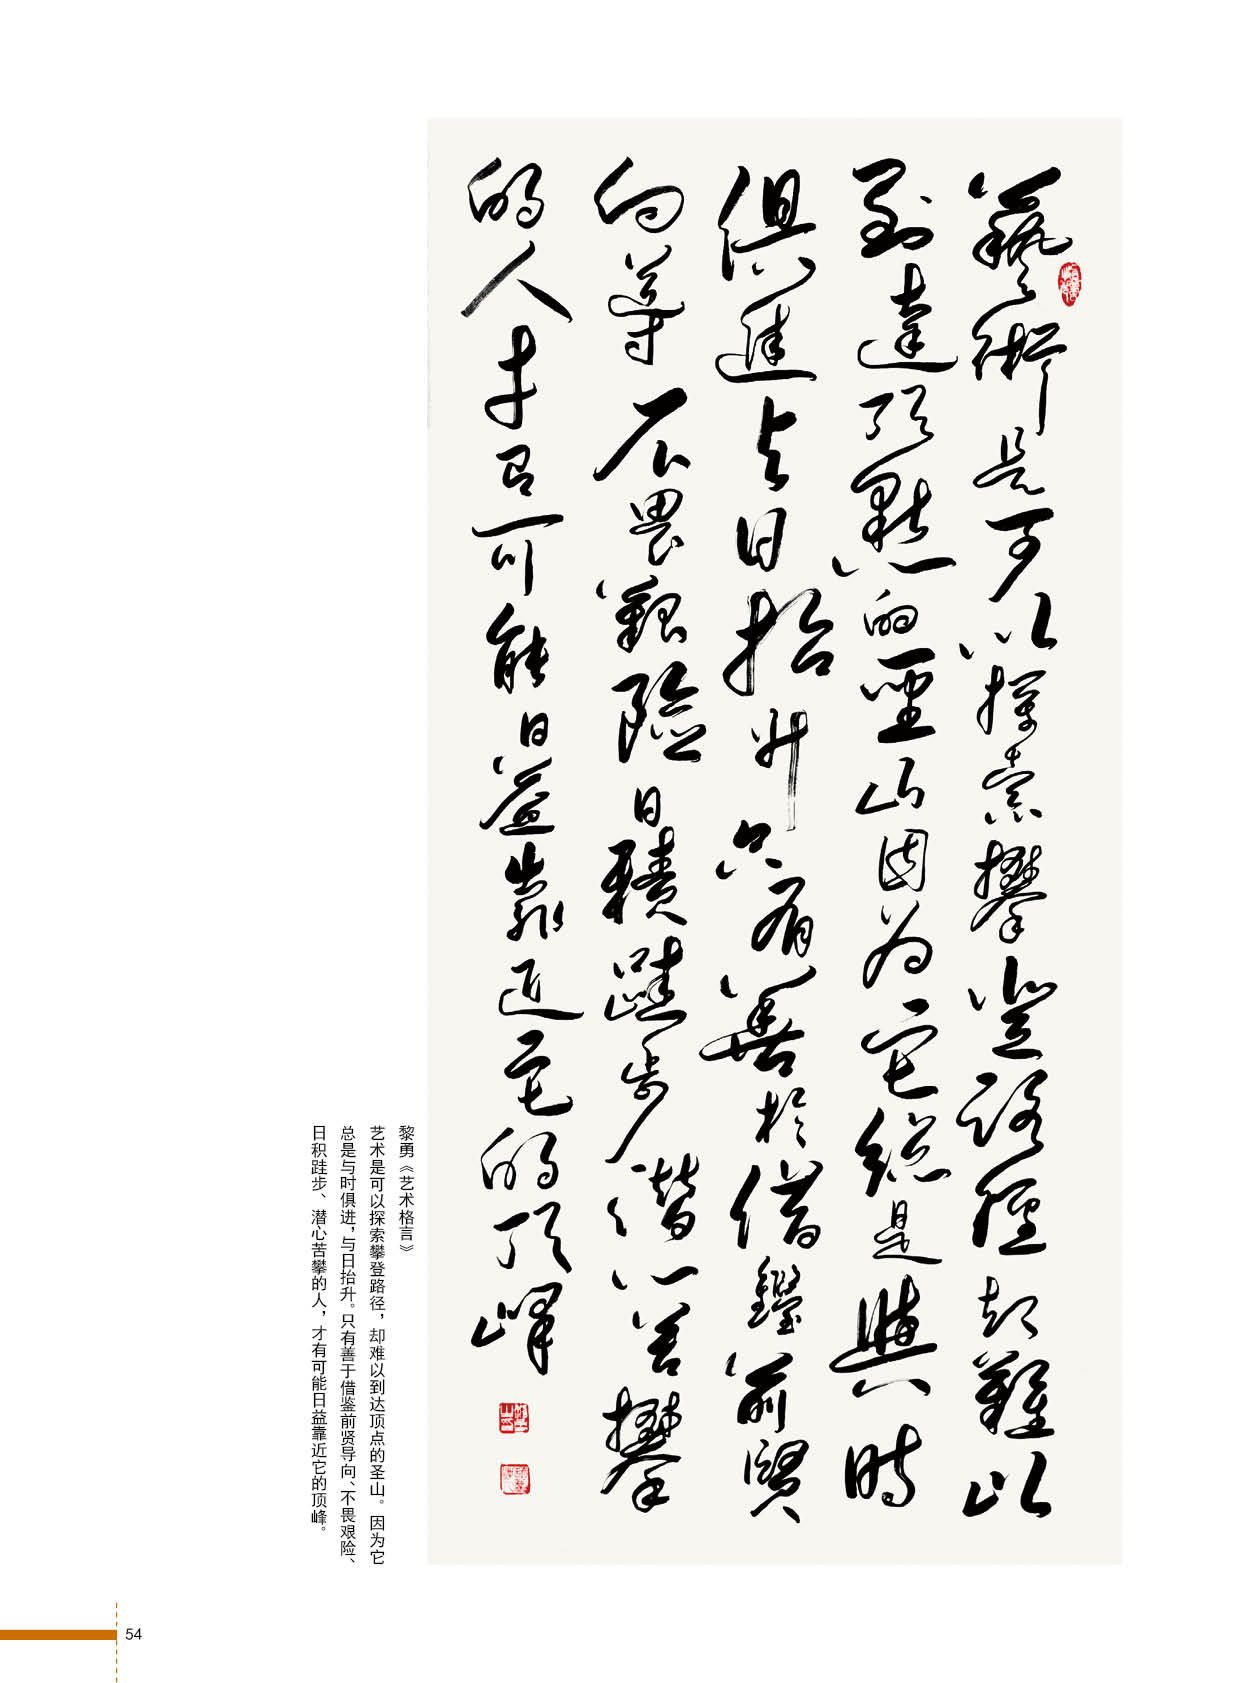 藝術是可以探索攀登路徑却難以
到達顶點的聖山因为它總是與時
俱進与日抬升只有善於借鑒前賢
向導不畏艱險日積跬步潜心苦攀
的人才有可能日益靠近它的顶峰
黎勇《艺术格言》
艺术是可以探索攀登路径，却难以到达顶点的圣山。因为它
总是与时俱进，与日抬升。只有善于借鉴前贤导向、不畏艰险、
日积跬步、潜心苦攀的人，才有可能日益靠近它的顶峰。
54